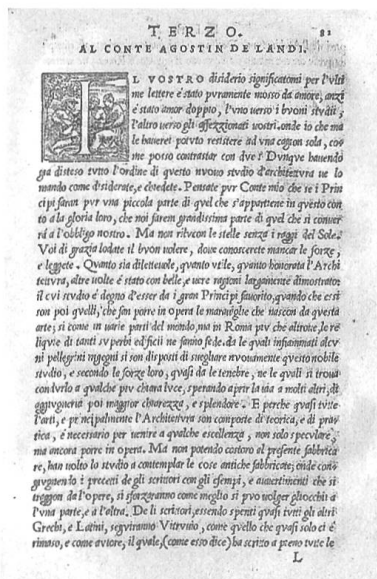 TERZO. 81
AL CONTE AGOSTIN DE LANDI.
IL VOSTRO disiderio significatomi per l'vlti
me lettere è stato pvramente mosso da amore, anzi
è stato amor doppio, l'vno verso i bvoni stvdii;
l'altro verso gli affezzionati vostri. onde io che ma
le haverei potvto resistere ad vna cagion sola, co=
me posso contrastar con dve? Dvnqve havendo
gia disteso tvtto l'ordine di qvesto nvovo stvdio d'architettvra ve lo
mando come disiderate, e chiedete. Pensate pvr Conte mio che se i Prin
cipi faran pvr vna piccola parte di qvel che s'appartiene in qvesto con
to a la gloria loro, che noi farem grandissima parte di qvel che si conver
rà a l'obbligo nostro. Ma non rilvcon le stelle senza i raggi del Sole.
Voi di grazia lodate il bvon volere, dove conoscerete mancar le forze,
e leggete. Qvanto sia dilettevole, qvanto vtile, qvanto honorata l'Archi
tettvra, altre volte è stato con belle, e vere ragioni largamente dimostrato:
il cvi stvdio è degno d'esser da i gran Principi favorito, qvando che essi
son poi qvelli, che fan porre in opera le maraviglie che nascon da qvesta
arte; si come in varie parti del mondo, ma in Roma piv che altrove, le re
liqvie di tanti svperbi edificii ne fanno fede. da le qvali infiammati alcv
ni pellegrini ingegni si son disposti di svegliare nvovamente qvesto nobile
stvdio, e secondo le forze loro, qvasi da le tenebre, ne le qvali si trova
condvrlo a qvalche piv chiara lvce, sperando aprir la via a molti altri, di
aggivgnervi poi maggior chiarezza, e splendore. E perche qvasi tvtte
l'arti, e principalmente l'Architettvra son composte di teorica, e di pra
tica, è necessario per venire a qvalche escellenza, non solo specvlare,
ma ancora porre in opera. Ma non potendo costoro al presente fabbrica
re, han volto lo stvdio a contemplar le cose antiche fabbricate; onde con
givgnendo i precetti de gli scrittori con gli esempi, e avvertimenti che si
treggon da l'opere, si sforzaranno come meglio si pvo volger gliocchi a
l'vna parte, e a l'altra. De li scrittori, essendo spenti qvasi tvtti gli altri
Grechi, e Latini, segviranno Vitrvvio, come qvello che qvasi solo ci è
rimaso, e come avtore, il qvale, (come esso dice) ha scritto a pieno tvtte le
L